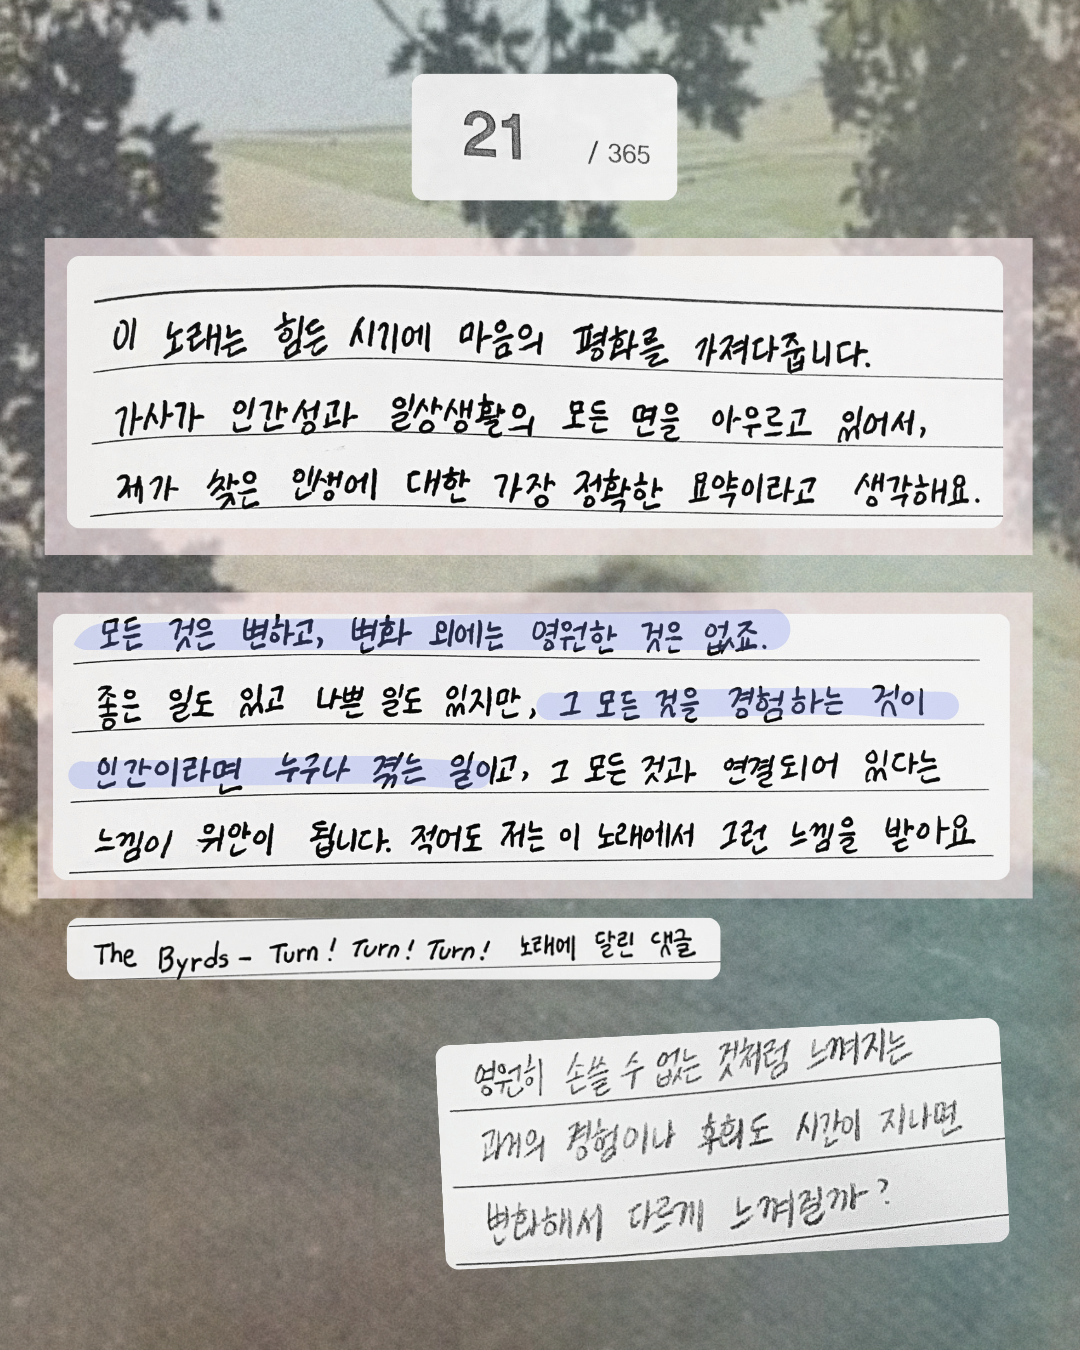 21 / 365
이 노래는 힘든 시기에 마음의 평화를 가져다줍니다.
가사가 인간성과 일상생활의 모든 면을 아우르고 있어서,
제가 찾은 인생에 대한 가장 정확한 요약이라고 생각해요.
모든 것은 변하고, 변화 외에는 영원한 것은 없죠.
좋은 일도 있고 나쁜 일도 있지만, 그 모든 것을 경험하는 것이
인간이라면 누구나 겪는 일이고, 그 모든 것과 연결되어 있다는
느낌이 위안이 됩니다. 적어도 저는 이 노래에서 그런 느낌을 받아요
The Byrds - Turn! Turn! Turn! 노래에 달린 댓글
영원히 손쓸 수 없는 것처럼 느껴지는
과거의 경험이나 후회도 시간이 지나면
변화해서 다르게 느껴질까?